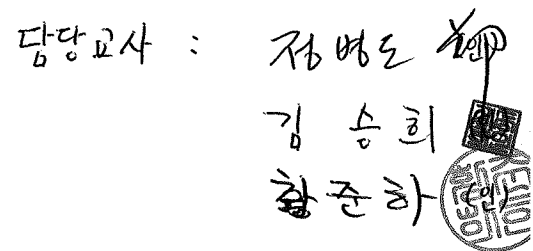 담당교사 : 정병도 (인)
김승희 (인)
황준하 (인)